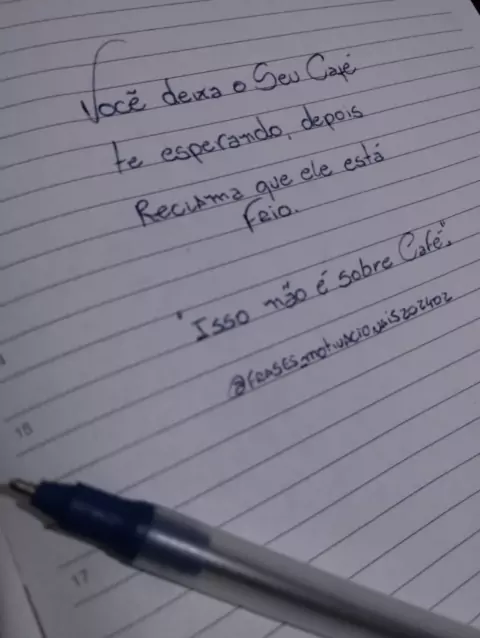 Você deixa o Seu Café
te esperando, depois
Reclama que ele está
feio.
"Isso não é sobre Café".
@frases_motivacionais202402
16
17